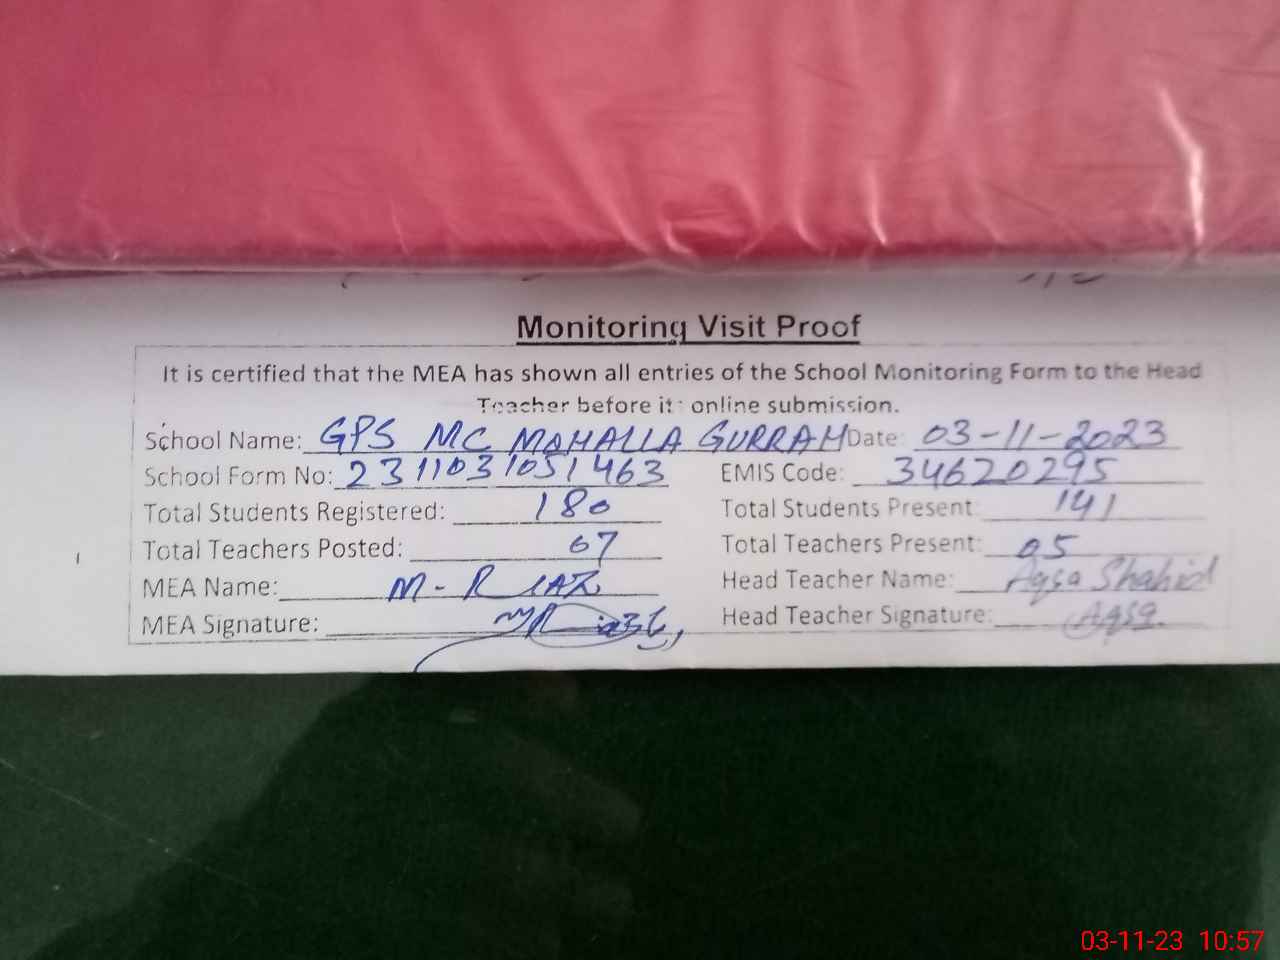 Monitoring Visit Proof
It is certified that the MEA has shown all entries of the School Monitoring Form to the Head
Teacher before its online submission.
School Name: GPS MC MAHALLA GURRAH Date: 03-11-2023
School Form No: 2311031051463 EMIS Code: 34620295
Total Students Registered: 180 Total Students Present: 141
Total Teachers Posted: 07 Total Teachers Present: 05
MEA Name: M-RIAZ Head Teacher Name: Aqsa Shahid
MEA Signature: Head Teacher Signature: Aqsa.
03-11-23 10:57